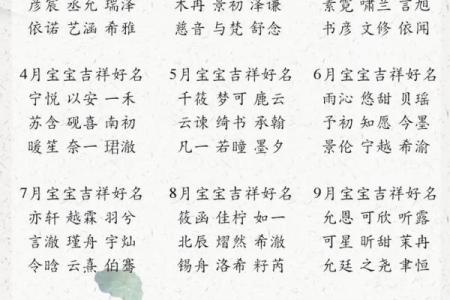 彦宸 丞允 瑞泽
依诺 艺涵 希雅
木冉 景初 泽谦
慈音 与梵 舒念
素霓 啸兰 言旭
书彦 文修 依闻
4月宝宝吉祥好名
宁悦 以安 一禾
苏含 砚喜 南初
暖笙 奈一 珺澈
5月宝宝吉祥好名
千筱 梦可 鹿云
云谏 绮书 承翰
凡一 若瞳 墨夕
6月宝宝吉祥好名
雨沁 悠甜 贝瑶
予初 知愿 今墨
景伦 宁越 希渝
7月宝宝吉祥好名
亦轩 越霖 羽兮
言澈 瑾舟 宇灿
令晗 云熹 伯骞
8月宝宝吉祥好名
筱函 佳柠 如一
北辰 熠然 希澈
锡舟 洛希 籽芮
9月宝宝吉祥好名
允恩 可欣 听露
可星 昕甜 茉冉
允廷 之尧 聿恒